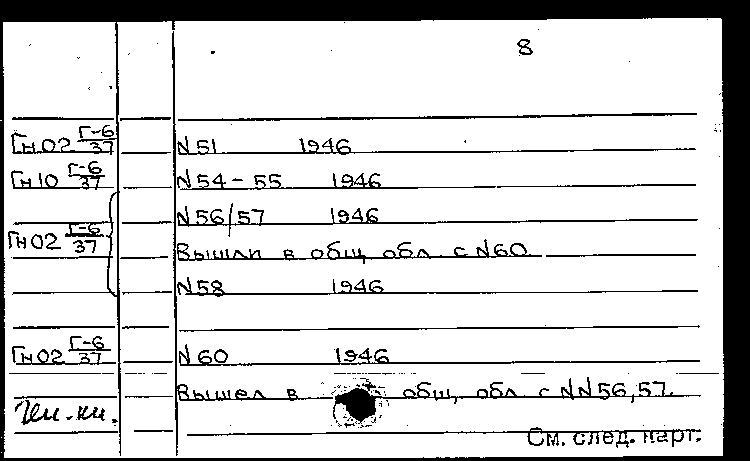 8
Гн02 Г-6/37 N51 1946
Гн10 Г-6/37 N54-55 1946
N56/57 1946
Гн02 Г-6/37 Вышли в общ обл. с N60
N58 1946
Гн02 Г-6/37 N60 1946
Вышел в общ, обл. с NN56,57.
См. след. карт.